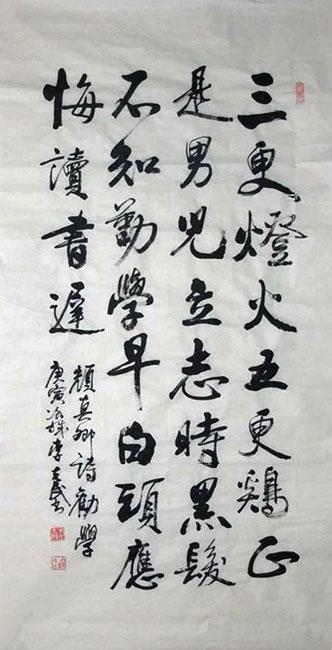 三更燈火五更鷄正
是男兒立志時黑髮
不知勤學早白頭應
悔讀書遲
顏真卿詩勸學
庚寅